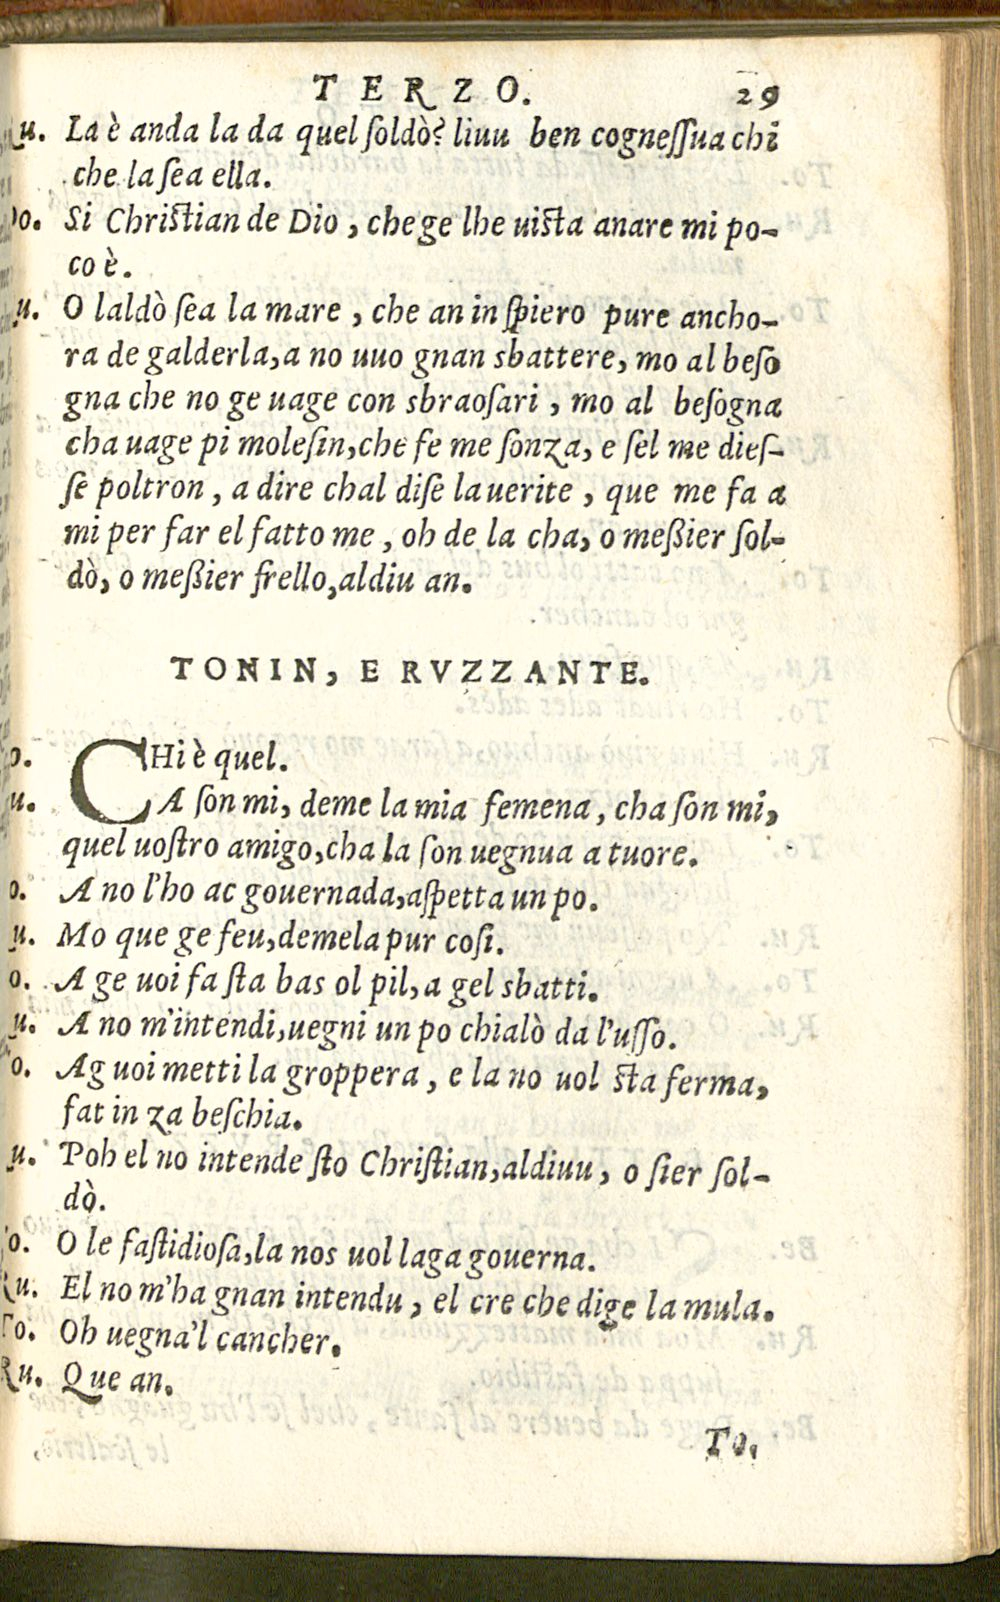 TERZO. 29
Ru. La è anda la da quel ſoldò? liuu ben cogneſſua chi
che la ſea ella.
Do. Si Chriſtian de Dio, che ge lhe uiſta anare mi po-
co è.
Ru. O laldò ſea la mare, che an in ſpiero pure ancho-
ra de galderla, a no uuo gnan sbattere, mo al beſo
gna che no ge uage con sbraoſari, mo al beſogna
cha uage pi moleſin, che fe me ſonza, e ſel me dieſ-
ſe poltron, a dire chal diſe la uerite, que me fa a
mi per far el fatto me, oh de la cha, o meßier ſol-
dò, o meßier frello, aldiu an.
TONIN, E RVZZANTE.
To. CHi è quel.
Ru. A ſon mi, deme la mia femena, cha ſon mi,
quel uoſtro amigo, cha la ſon uegnua a tuore.
To. A no l'ho ac gouernada, aſpetta un po.
Ru. Mo que ge feu, demela pur coſi.
To. A ge uoi fa ſta bas ol pil, a gel sbatti.
Ru. A no m'intendi, uegni un po chialò da l'uſſo.
To. Ag uoi metti la groppera, e la no uol ſta ferma,
fat in za beſchia.
Ru. Poh el no intende ſto Chriſtian, aldiuu, o ſier ſol-
dò.
To. O le faſtidioſa, la nos uol laga gouerna.
Ru. El no m'ha gnan intendu, el cre che dige la mula.
To. Oh uegna'l cancher.
Ru. Que an.
To.